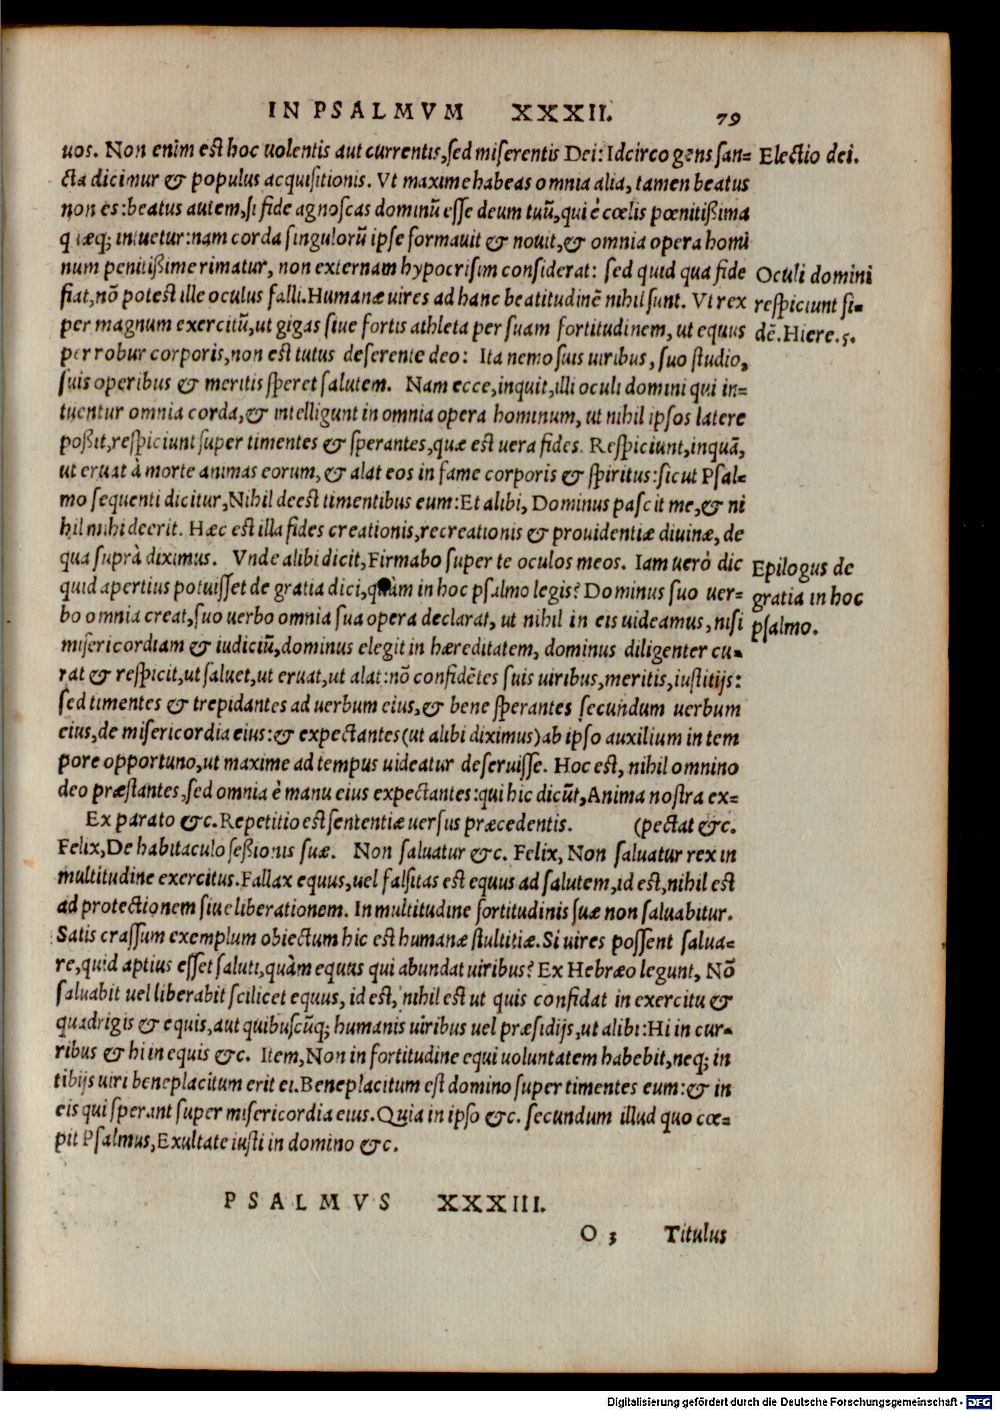 IN PSALMVM XXXII. 79
uos. Non enim est hoc uolentis aut currentis, sed miserentis Dei: Idcirco gens san= Electio dei.
cta dicimur & populus acquisitionis. Vt maxime habeas omnia alia, tamen beatus
non es: beatus autem, si fide agnoscas dominũ esse deum tuũ, qui è cœlis pœnitißima
quæq; intuetur: nam corda singulorũ ipse formauit & nouit, & omnia opera homi
num penitißime rimatur, non externam hypocrisim considerat: sed quid qua fide Oculi domini
fiat, nõ potest ille oculus falli. Humanæ uires ad hanc beatitudinẽ nihil sunt. Vt rex respiciunt fi=
per magnum exercitũ, ut gigas siue fortis athleta per suam fortitudinem, ut equus dẽ. Hiere. 5.
per robur corporis, non est tutus deserente deo: Ita nemo suis uiribus, suo studio,
suis operibus & meritis speret salutem. Nam ecce, inquit, illi oculi domini qui in=
tuentur omnia corda, & intelligunt in omnia opera hominum, ut nihil ipsos latere
poßit, respiciunt super timentes & sperantes, quæ est uera fides. Respiciunt, inquã,
ut eruat à morte animas eorum, & alat eos in fame corporis & spiritus: sicut Psal=
mo sequenti dicitur, Nihil deest timentibus eum: Et alibi, Dominus pascit me, & ni
hil mihi deerit. Hæc est illa fides creationis, recreationis & prouidentiæ diuinæ, de
qua suprà diximus. Vnde alibi dicit, Firmabo super te oculos meos. Iam uerò dic Epilogus de
quid apertius potuisset de gratia dici, quàm in hoc psalmo legis? Dominus suo uer= gratia in hoc
bo omnia creat, suo uerbo omnia sua opera declarat, ut nihil in eis uideamus, nisi psalmo.
misericordiam & iudiciũ, dominus elegit in hæreditatem, dominus diligenter cu=
rat & respicit, ut saluet, ut eruat, ut alat: nõ confidẽtes suis uiribus, meritis, iustitijs:
sed timentes & trepidantes ad uerbum eius, & bene sperantes secundum uerbum
eius, de misericordia eius: & expectantes (ut alibi diximus) ab ipso auxilium in tem
pore opportuno, ut maxime ad tempus uideatur deseruisse. Hoc est, nihil omnino
deo præstantes, sed omnia è manu eius expectantes: qui hic dicũt, Anima nostra ex=
Ex parato &c. Repetitio est sententiæ uersus præcedentis. (pectat &c.
Felix, De habitaculo seßionis suæ. Non saluatur &c. Felix, Non saluatur rex in
multitudine exercitus. Fallax equus, uel falsitas est equus ad salutem, id est, nihil est
ad protectionem siue liberationem. In multitudine fortitudinis suæ non saluabitur.
Satis crassum exemplum obiectum hic est humanæ stultitiæ. Si uires possent salua=
re, quid aptius esset saluti, quàm equus qui abundat uiribus? Ex Hebræo legunt, Nõ
saluabit uel liberabit scilicet equus, id est, nihil est ut quis confidat in exercitu &
quadrigis & equis, aut quibuscũq; humanis uiribus uel præsidijs, ut alibi: Hi in cur=
ribus & hi in equis &c. Item, Non in fortitudine equi uoluntatem habebit, neq; in
tibijs uiri beneplacitum erit ei. Beneplacitum est domino super timentes eum: & in
eis qui sperant super misericordia eius. Quia in ipso &c. secundum illud quo cœ=
pit Psalmus, Exultate iusti in domino &c.
PSALMVS XXXIII.
O 3 Titulus
Digitalisierung gefördert durch die Deutsche Forschungsgemeinschaft - DFG